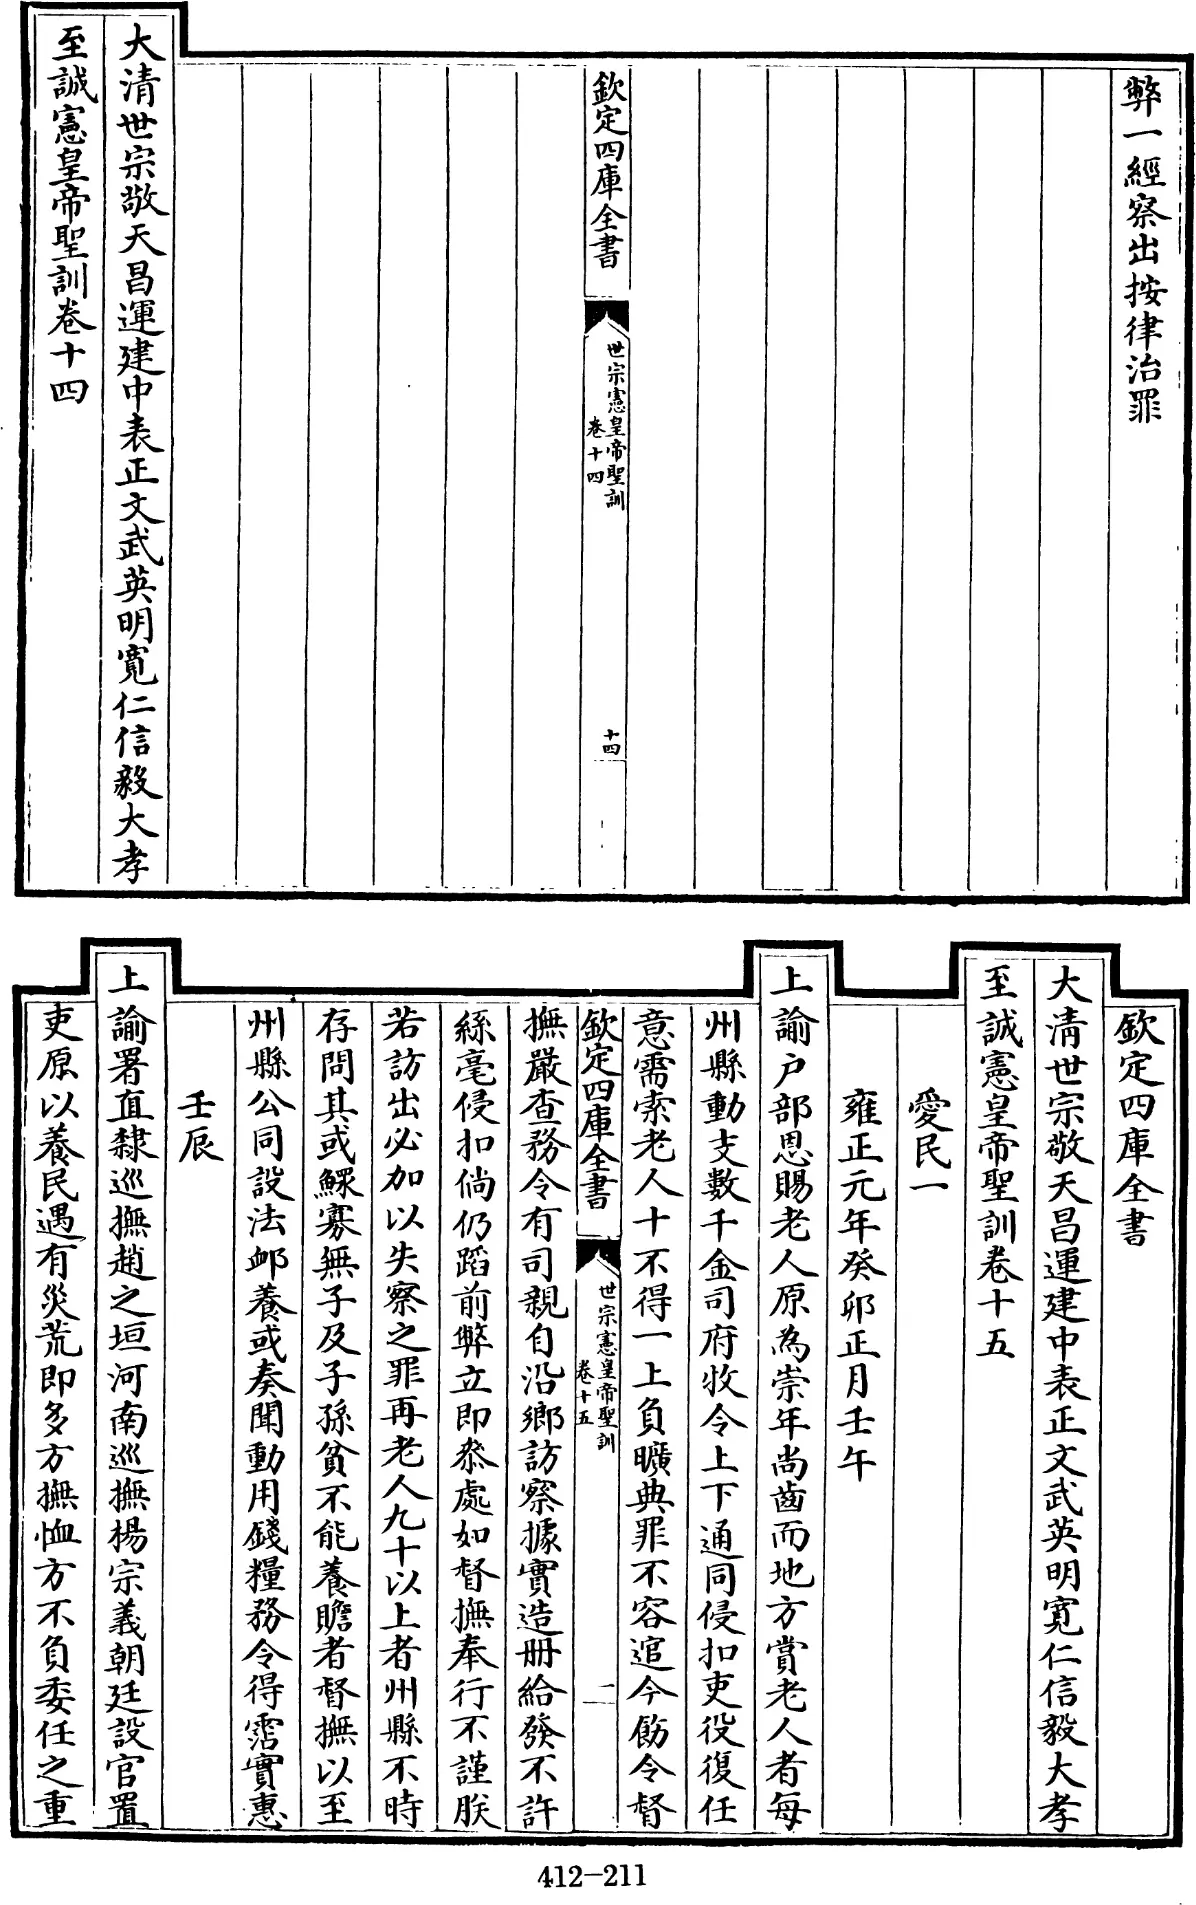 弊一經察出按律治罪
欽定四庫全書
世宗憲皇帝聖訓
卷十四
十四
大清世宗敬天昌運建中表正文武英明寬仁信毅大孝
至誠憲皇帝聖訓卷十四
欽定四庫全書
大清世宗敬天昌運建中表正文武英明寬仁信毅大孝
至誠憲皇帝聖訓卷十五
愛民一
雍正元年癸卯正月壬午
上諭户部恩賜老人原為崇年尚齒而地方賞老人者每
州縣動支數千金司府牧令上下通同侵扣吏役復任
意需索老人十不得一上負曠典罪不容逭今飭令督
欽定四庫全書
世宗憲皇帝聖訓
卷十五
一
撫嚴查務令有司親自沿鄉訪察據實造冊給發不許
絲毫侵扣倘仍蹈前弊立即叅處如督撫奉行不謹朕
若訪出必加以失察之罪再老人九十以上者州縣不時
存問其或鰥寡無子及子孫貧不能養贍者督撫以至
州縣公同設法䘏養或奏聞動用錢糧務令得霑實惠
壬辰
上諭署直隸巡撫趙之垣河南巡撫楊宗義朝廷設官置
吏原以養民遇有災荒即多方撫恤方不負委任之重
412-211